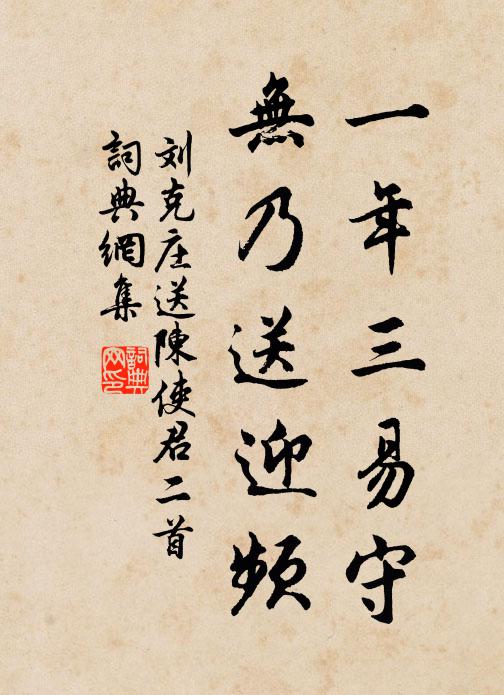 一年三易守
無乃送迎頻
刘克庄送陳使君二首
詞典網集
詞典网印